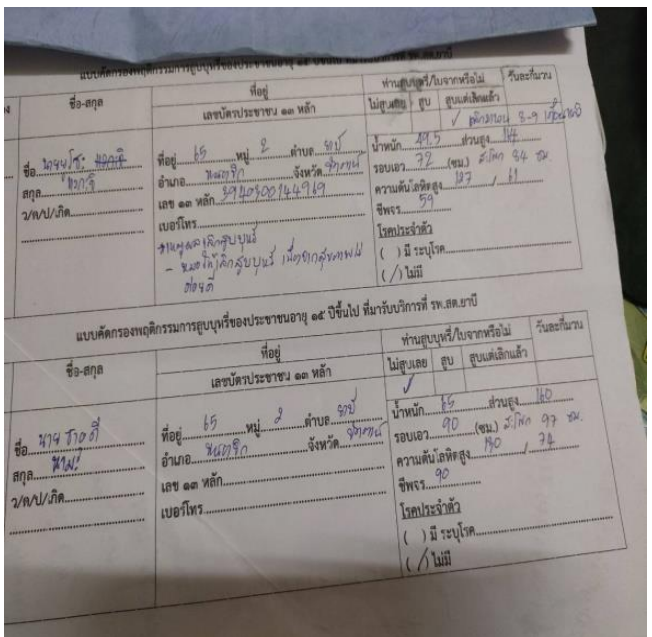 แบบคัดกรองพฤติกรรมการสูบบุหรี่ของประชาชนอายุ ๑๕ ปีขึ้นไป ที่มารับบริการที่ รพ.สต.ยาบี
ชื่อ-สกุล
ที่อยู่
เลขบัตรประชาชน ๑๓ หลัก
ท่านสูบบุหรี่/ใบจากหรือไม่
วันละกี่มวน
ไม่สูบเลย สูบ สูบแต่เลิกแล้ว
✓ 8-9
ชื่อ
สกุล
ว/ด/ป/เกิด
ที่อยู่ 65 หมู่ 2 ตำบล ยาบี
อำเภอ หนองจิก จังหวัด ปัตตานี
เลข ๑๓ หลัก
เบอร์โทร
สาเหตุผลเลิกสูบบุหรี่
- หมอให้เลิกสูบบุหรี่ เนื่องจากสุขภาพไม่
ค่อยดี
น้ำหนัก 49.5 ส่วนสูง
รอบเอว 72 (ซม.) สะโพก 84 ซม.
ความดันโลหิตสูง / 61
ชีพจร 59
โรคประจำตัว
( ) มี ระบุโรค
( / ) ไม่มี
แบบคัดกรองพฤติกรรมการสูบบุหรี่ของประชาชนอายุ ๑๕ ปีขึ้นไป ที่มารับบริการที่ รพ.สต.ยาบี
ชื่อ-สกุล
ที่อยู่
เลขบัตรประชาชน ๑๓ หลัก
ท่านสูบบุหรี่/ใบจากหรือไม่
วันละกี่มวน
ไม่สูบเลย สูบ สูบแต่เลิกแล้ว
✓
ชื่อ นาย
สกุล
ว/ด/ป/เกิด
ที่อยู่ 65 หมู่ 2 ตำบล ยาบี
อำเภอ หนองจิก จังหวัด ปัตตานี
เลข ๑๓ หลัก
เบอร์โทร
น้ำหนัก 65 ส่วนสูง 160
รอบเอว 90 (ซม.) สะโพก 97 ซม.
ความดันโลหิตสูง / 74
ชีพจร 90
โรคประจำตัว
( ) มี ระบุโรค
( / ) ไม่มี